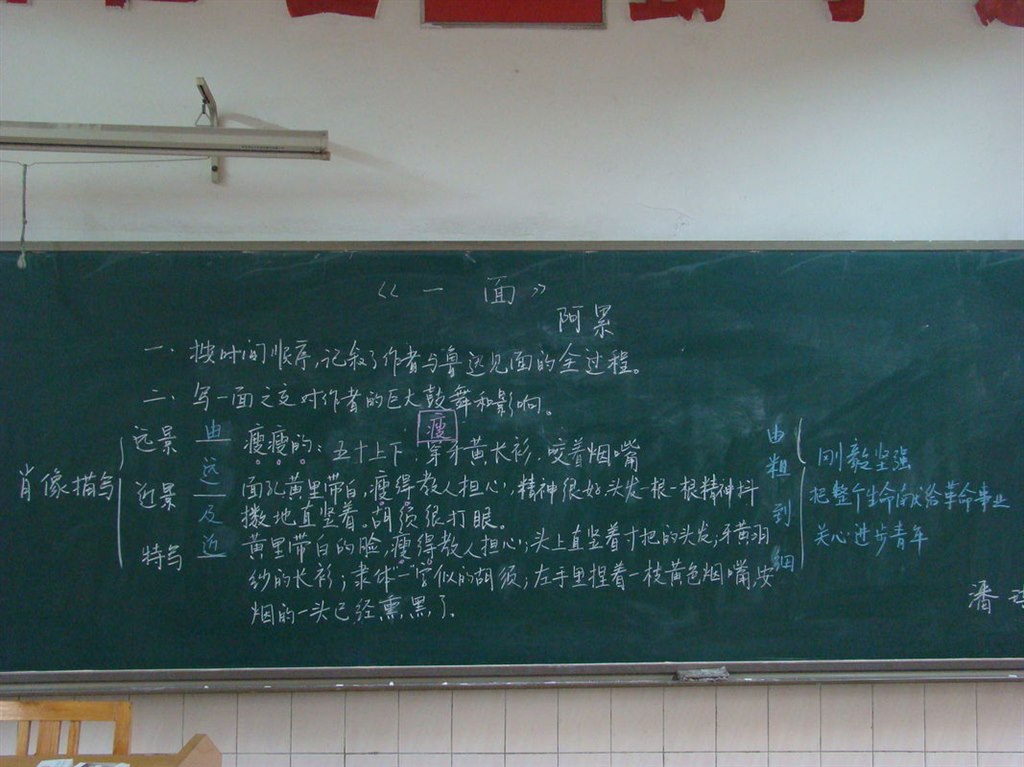 《一 面》
阿累
一、按时间顺序,记叙了作者与鲁迅见面的全过程。
二、写一面之交对作者的巨大鼓舞和影响。
瘦
肖像描写
远景 瘦瘦的:五十上下,穿牙黄长衫,咬着烟嘴
近景 面孔黄里带白,瘦得教人担心,精神很好,头发一根一根精神抖
擞地直竖着。胡须很打眼。
特写 黄里带白的脸,瘦得教人担心;头上直竖着寸把的头发;牙黄羽
纱的长衫;隶体"一"字似的胡须;左手里捏着一枝黄色烟嘴,安
烟的一头已经熏黑了.
由远及近
由粗到细
刚毅坚强
把整个生命献给革命事业
关心进步青年
潘